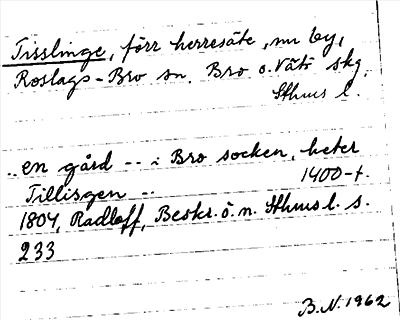 Tisslinge, förr herresäte, nu by,
Roslags-Bro sn. Bro o. Vätö skg,
Sthms l.
.. en gård -- i Bro socken, heter
Tillisgen -- 1400-t.
1804, Radloff, Beskr. ö. n. Sthms l. s.
233
B.N. 1962